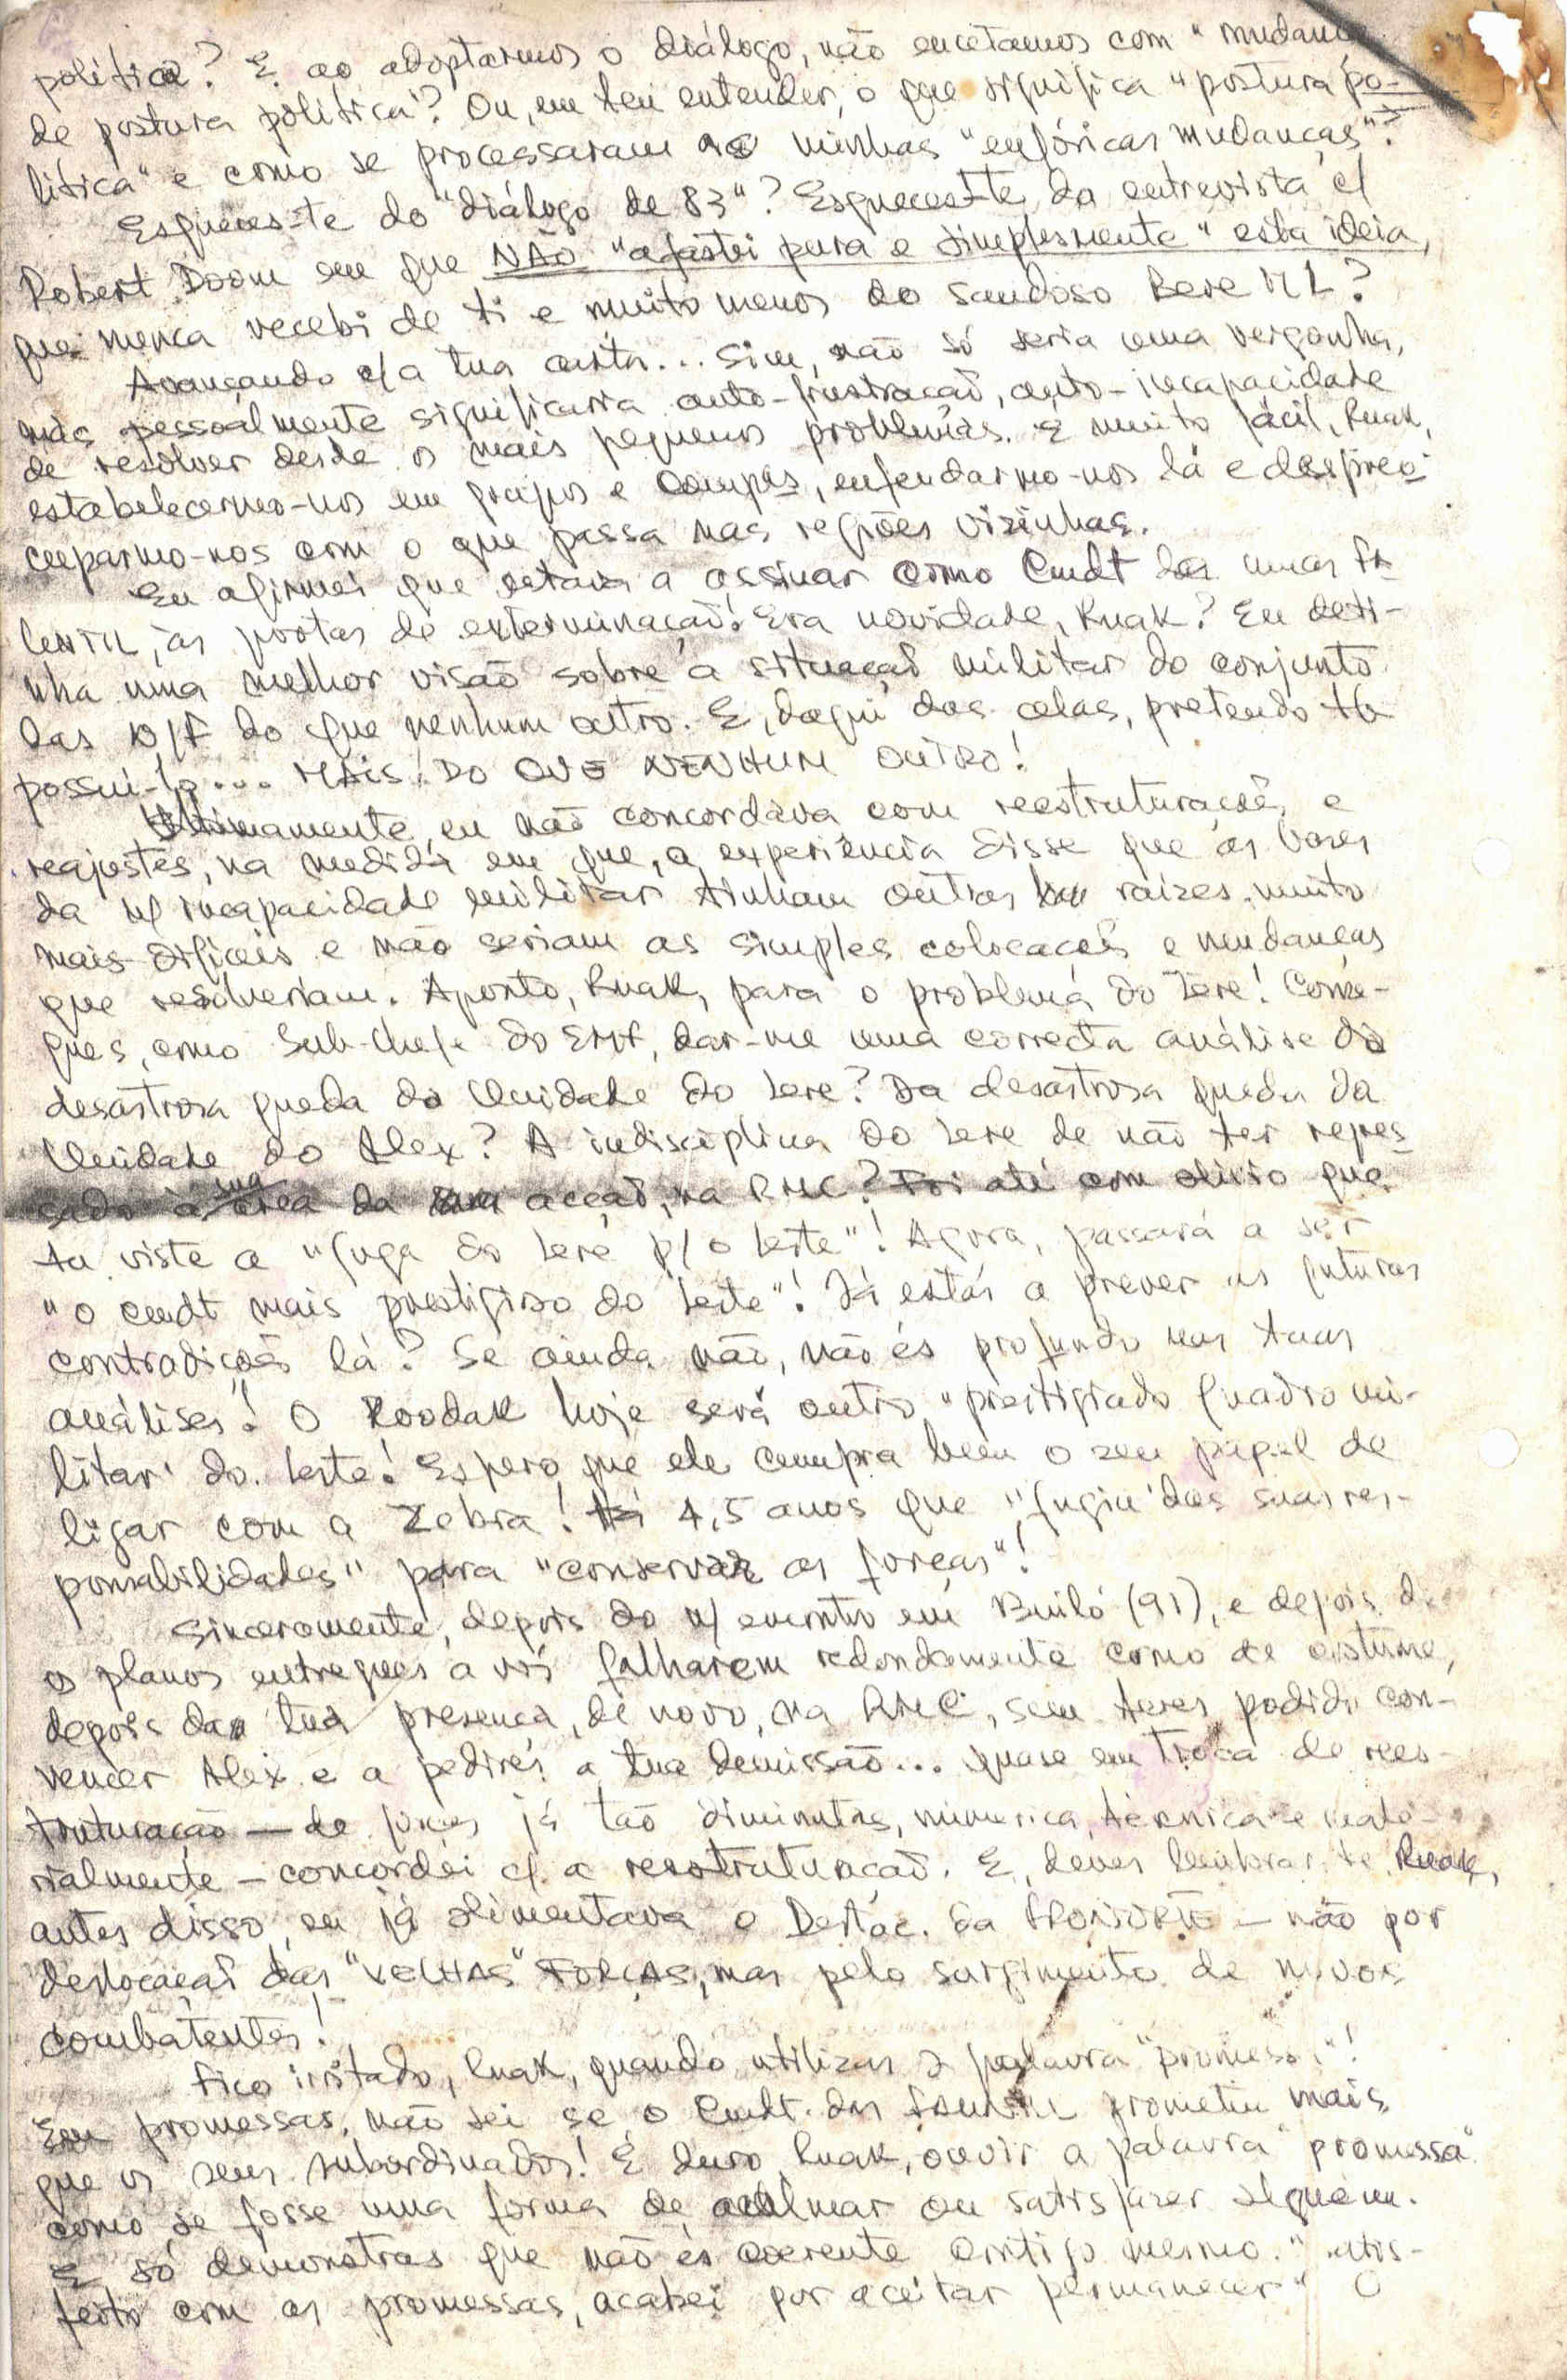 política? E ao adoptarmos o diálogo, não encetamos com "mudança
de postura política"? Ou, em teu entender, o que significa "postura po-
lítica" e como se processaram as minhas "eufóricas mudanças"?
Esqueces-te do "diálogo de 83"? Esqueces-te da entrevista c/
Robert Doom em que NÃO "afastei pura e simplesmente" esta ideia,
que nunca recebi de ti e muito menos do saudoso Bere ML?
Avançando c/ a tua carta... Sim, não só seria uma vergonha,
mas pessoalmente significaria auto-frustração, auto-incapacidade
de resolver desde os mais pequenos problemas. É muito fácil, Ruak,
estabelecermo-nos em grupos e Compªs, enfeudarmo-nos lá e despreo-
cuparmo-nos com o que passa nas regiões vizinhas.
Eu afirmei que estava a assinar como Cmdt das umas FA
LINTIL, às portas de exterminação! Era novidade, Ruak? Eu deti-
nha uma melhor visão sobre a situação militar do conjunto
das N/F do que nenhum outro. E, daqui das celas, pretendo tb
possui-la... MAIS DO QUE NENHUM OUTRO!
Ultimamente, eu não concordava com reestruturações e
reajustes, na medida em que, a experiência disse que as bases
da n/ incapacidade militar tinham outras raízes muito
mais difíceis e não seriam as simples colocações e mudanças
que resolveriam. Aponto, Ruak, para o problema do Lere! Conse-
gues, como Sub-Chefe do EMF, dar-me uma correcta análise da
desastrosa queda da Unidade do Lere? Da desastrosa queda da
Unidade do Alex? A indisciplina do Lere de não ter regres
sado à sua área da acção, na RMC? Foi até com alívio que
tu viste a "fuga do Lere p/ o Leste"! Agora, passará a ser
"o cmdt mais prestigioso do Leste"! Já estás a prever as futuras
contradições lá? Se ainda não, não és profundo nas tuas
análises! O Roodak hoje será outro "prestigiado quadro mi-
litar" do Leste! Espero que ele cumpra bem o seu papel de
ligar com a Zebra! Há 4,5 anos que "fugiu das suas res-
ponsabilidades" para "conservar as forças"!
Sinceramente, depois do n/ encontro em Builó (91), e depois de
os planos entregues a vós falharem redondamente como de costume,
depois da tua presença, de novo, na RMC, sem teres podido con-
vencer Alex e a pedires a tua demissão... quase em troca de rees-
truturação — de forças já tão diminutas, númerica, técnica e mate-
rialmente — concordei c/ a reestruturação. E, deves lembrar-te Ruak,
antes disso, eu já alimentava o Destac. da FRONTEIRA — não por
deslocação das "VELHAS" FORÇAS, mas pelo surgimento de novos
combatentes!
Fico irritado, Ruak, quando utilizas a palavra "promessa"!
Em promessas, não sei se o Cmdt. das FALINTIL prometeu mais
que os seus subordinados! É duro, Ruak, ouvir a palavra "promessa"
como se fosse uma forma de acalmar ou satisfazer alguém.
E só demonstras que não és coerente contigo mesmo. "Satis-
feito com as promessas, acabei por aceitar permanecer"